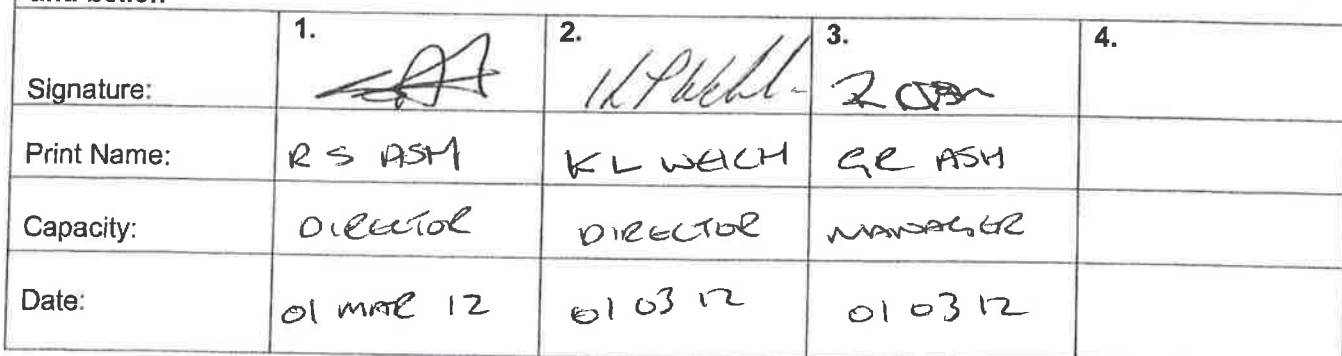 and belief.
1. 2. 3. 4.
Signature:
Print Name: R S ASH K L WELCH GR ASH
Capacity: DIRECTOR DIRECTOR MANAGER
Date: 01 MAR 12 01 03 12 01 03 12